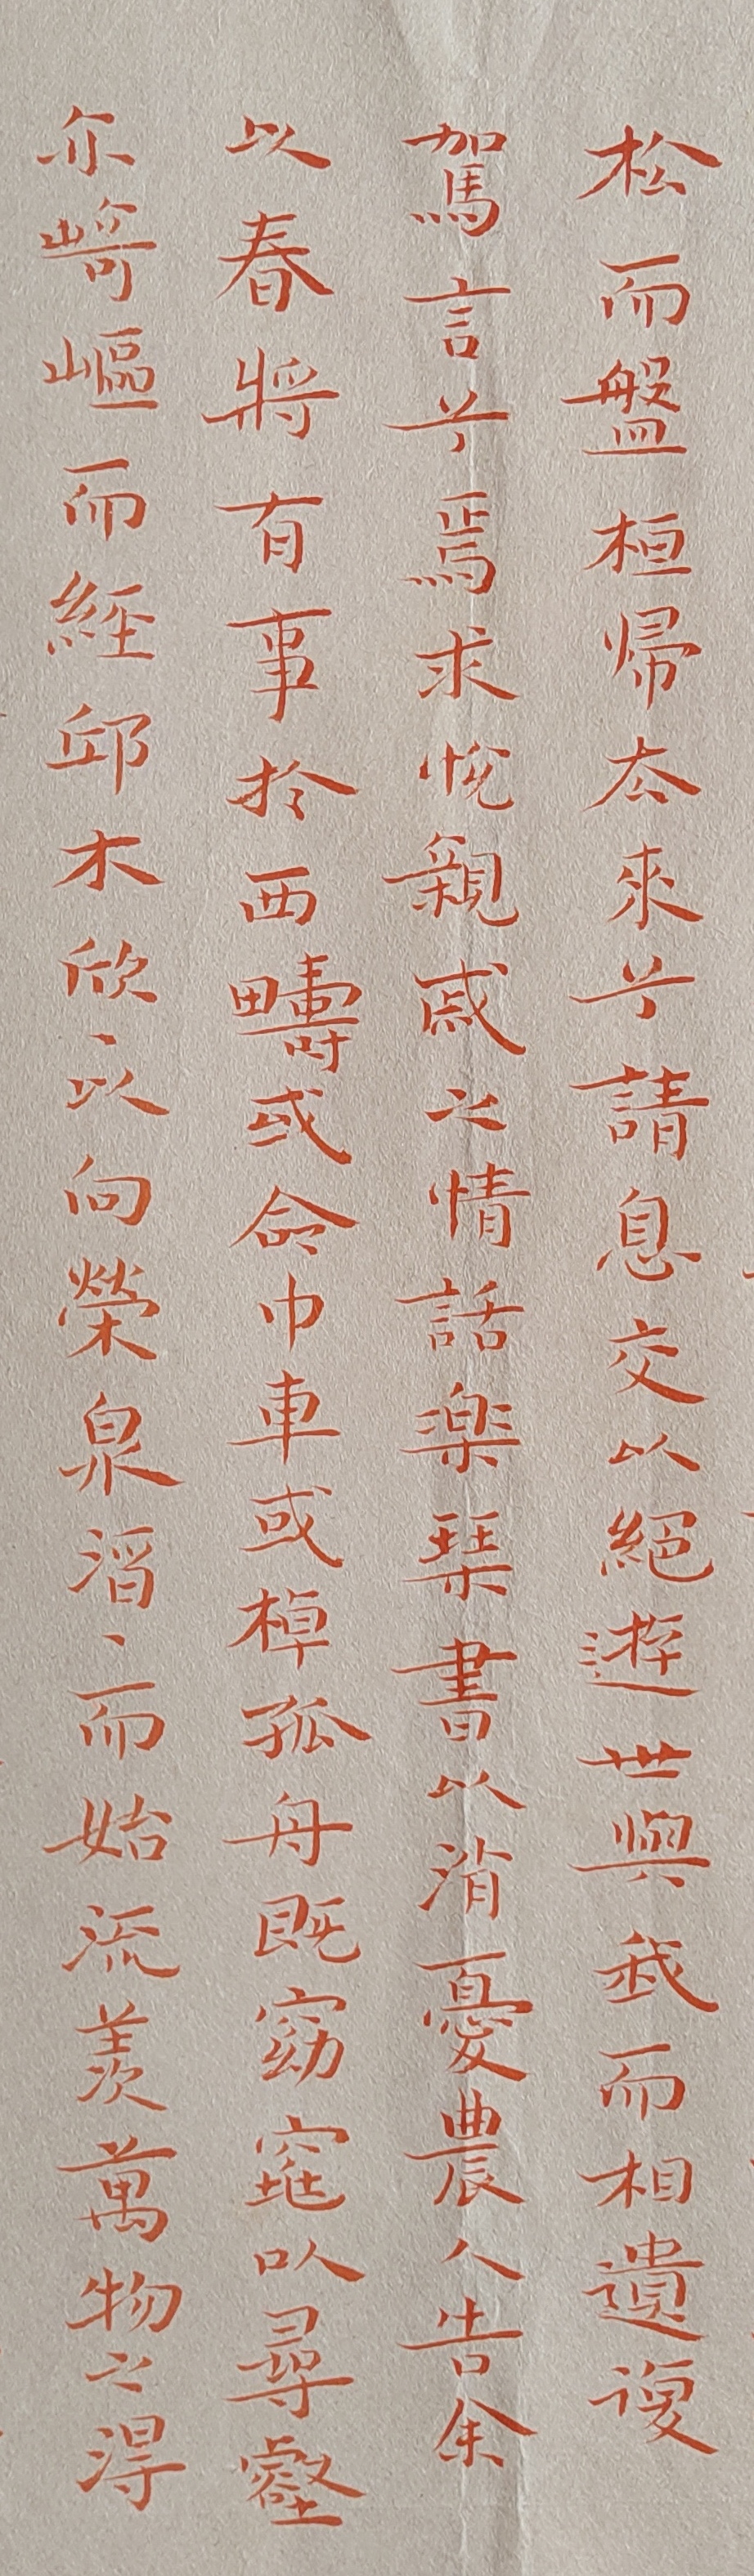 松而盤桓歸去來兮請息交以絕遊世與我而相遺復
駕言兮焉求悅親戚之情話樂琹書以消憂農人告余
以春將有事於西疇或命巾車或棹孤舟既窈窕以尋壑
亦崎嶇而經邱木欣〻以向榮泉涓〻而始流羨萬物之得